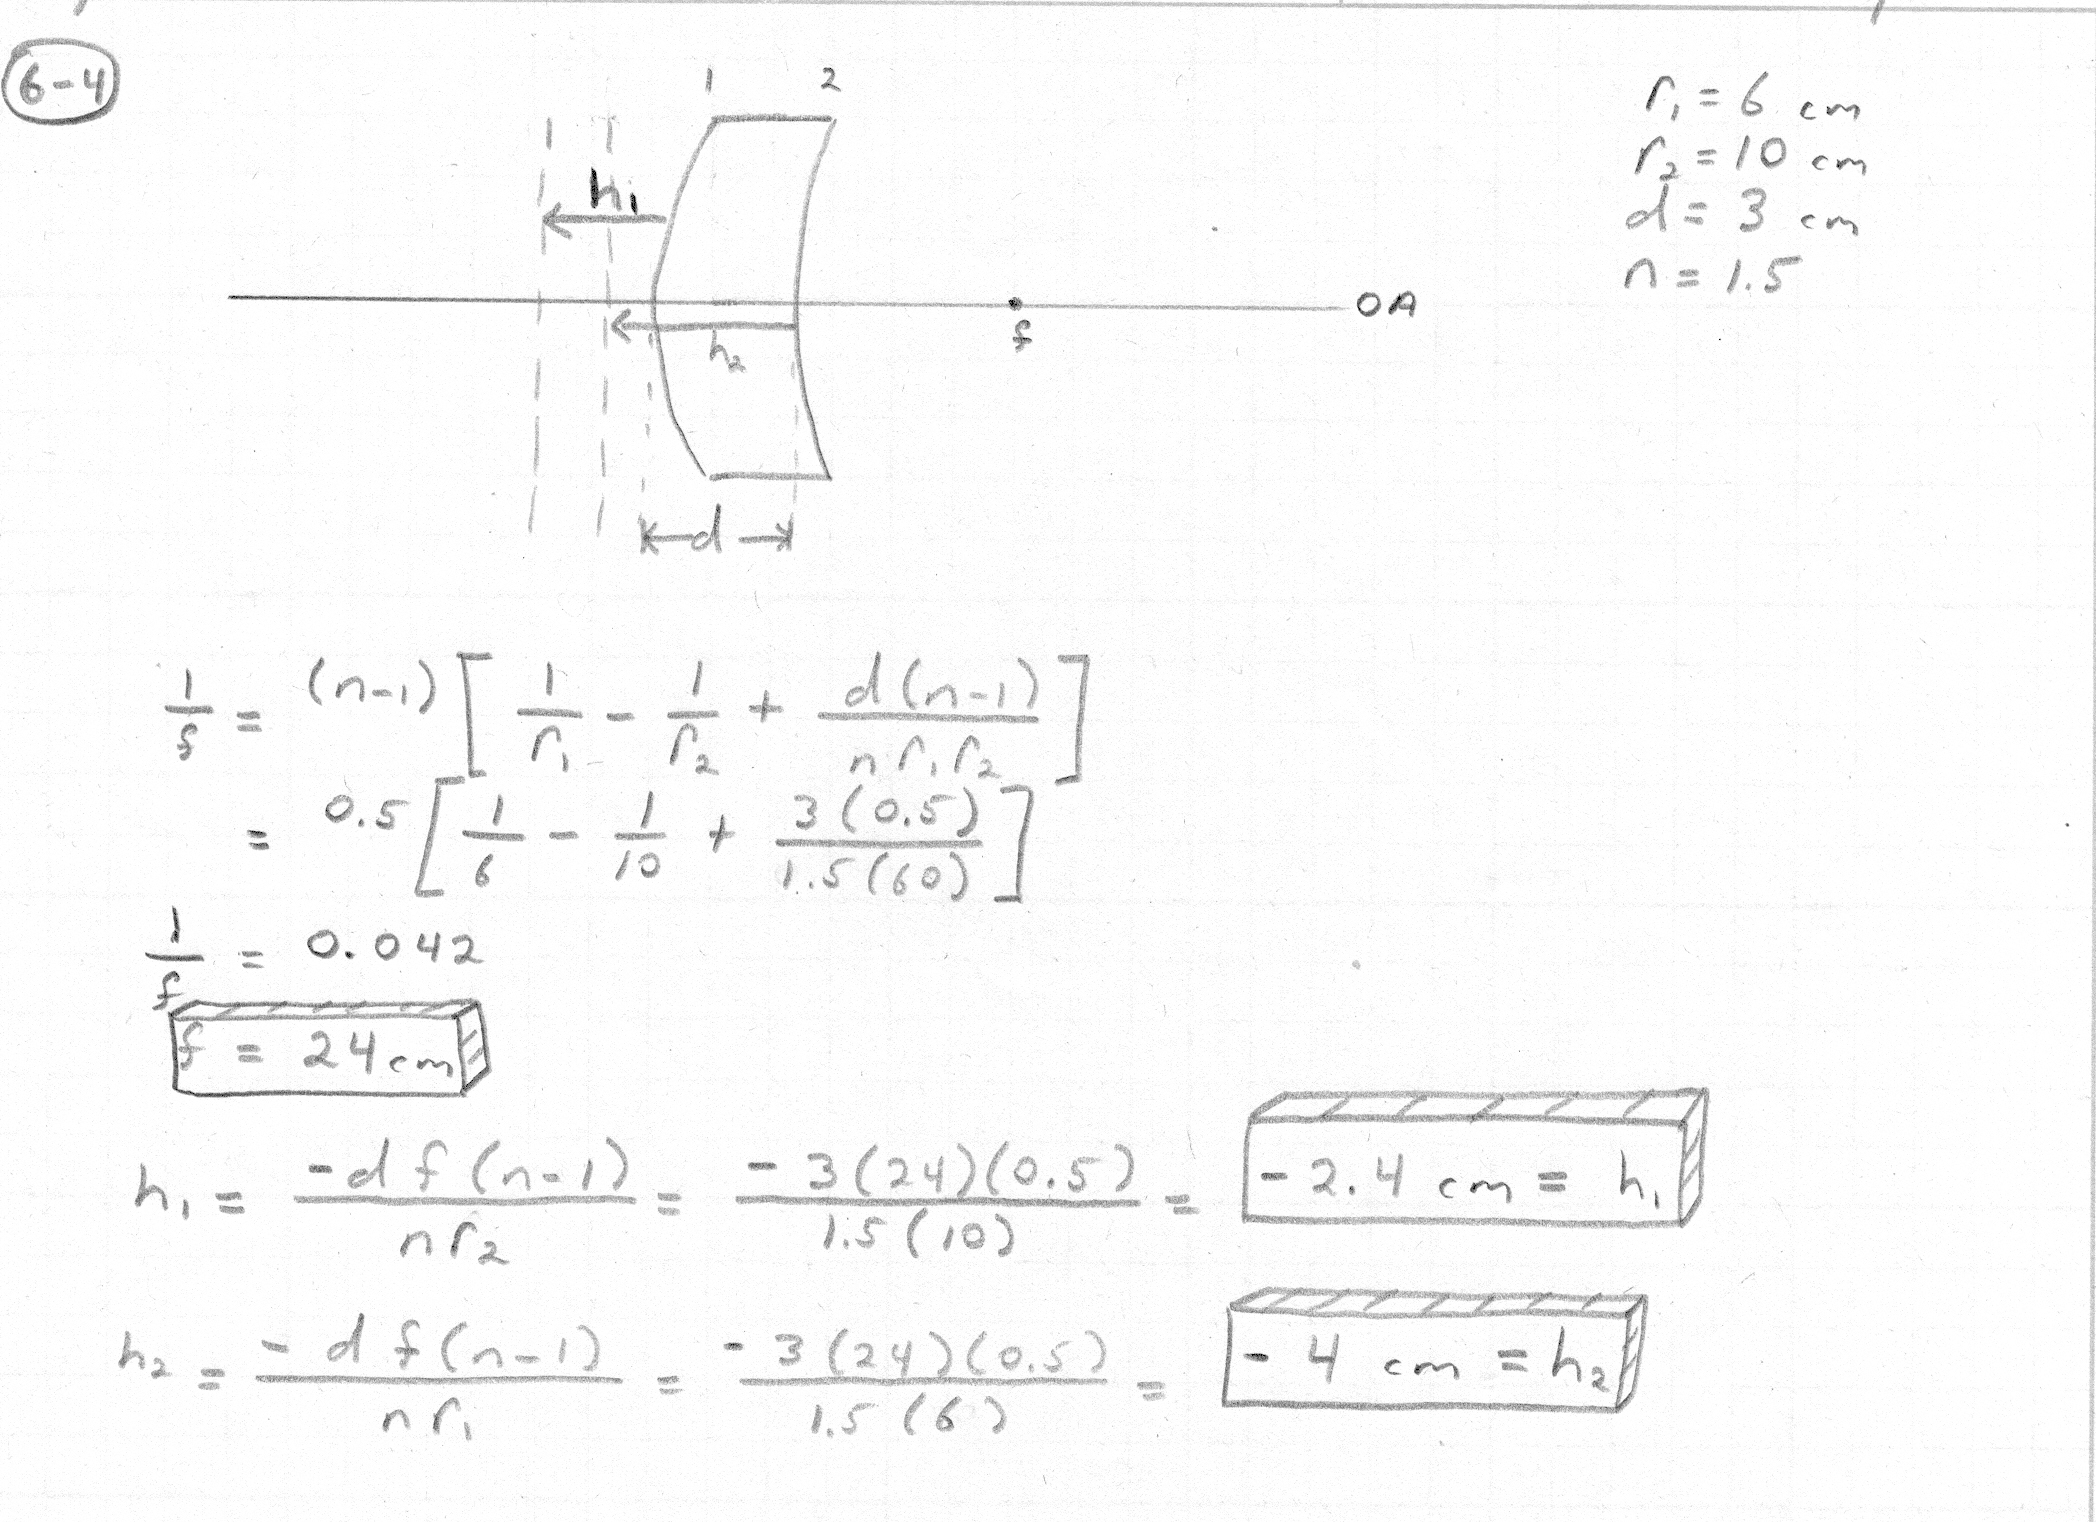 6-4
1 2
r₁ = 6 cm
r₂ = 10 cm
d = 3 cm
n = 1.5
h₁
OA
f
h₂
d
1/f = (n-1) [ 1/r₁ - 1/r₂ + d(n-1)/(n r₁ r₂) ]
= 0.5 [ 1/6 - 1/10 + 3(0.5)/1.5(60) ]
1/f = 0.042
f = 24 cm
h₁ = -d f (n-1)/(n r₂) = -3(24)(0.5)/1.5(10) = -2.4 cm = h₁
h₂ = -d f (n-1)/(n r₁) = -3(24)(0.5)/1.5(6) = -4 cm = h₂